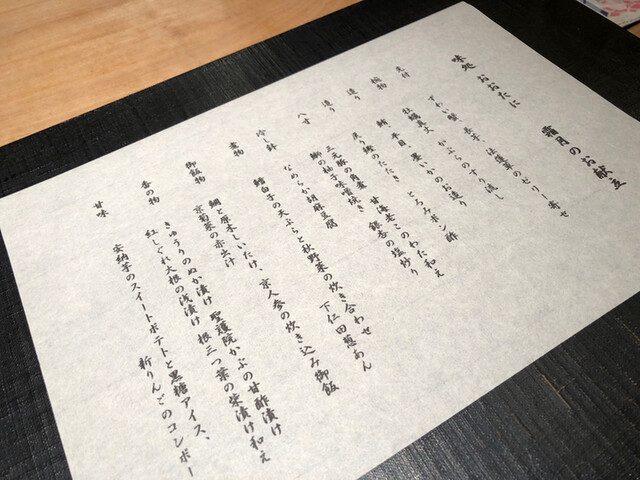 味処 おおたに
霜月のお献立
先付
ずわい蟹、長芋、法蓮草のゼリー寄せ
椀物
牡蠣真丈 かぶらのすり流し
造り
鯛、平目、墨いかのお造り
造り
戻り鰹のたたき とろろポン酢
八寸
三元豚の角煮 甘海老このわた和え
鰤の柚子味噌焼き 銀杏の塩炒り
冷し鉢
なめらか胡麻豆腐
煮物
鱈白子の天ぷらと秋野菜の炊き合わせ
下仁田葱あん
御飯物
鯛と原木しいたけ、京人参の炊き込み御飯
京菊菜の赤出汁
香の物
きゅうりのぬか漬け 聖護院かぶの甘酢漬け
紅しぐれ大根の浅漬け 根三つ葉の柴漬け和え
甘味
安納芋のスイートポテトと黒糖アイス、
新りんごのコンポー